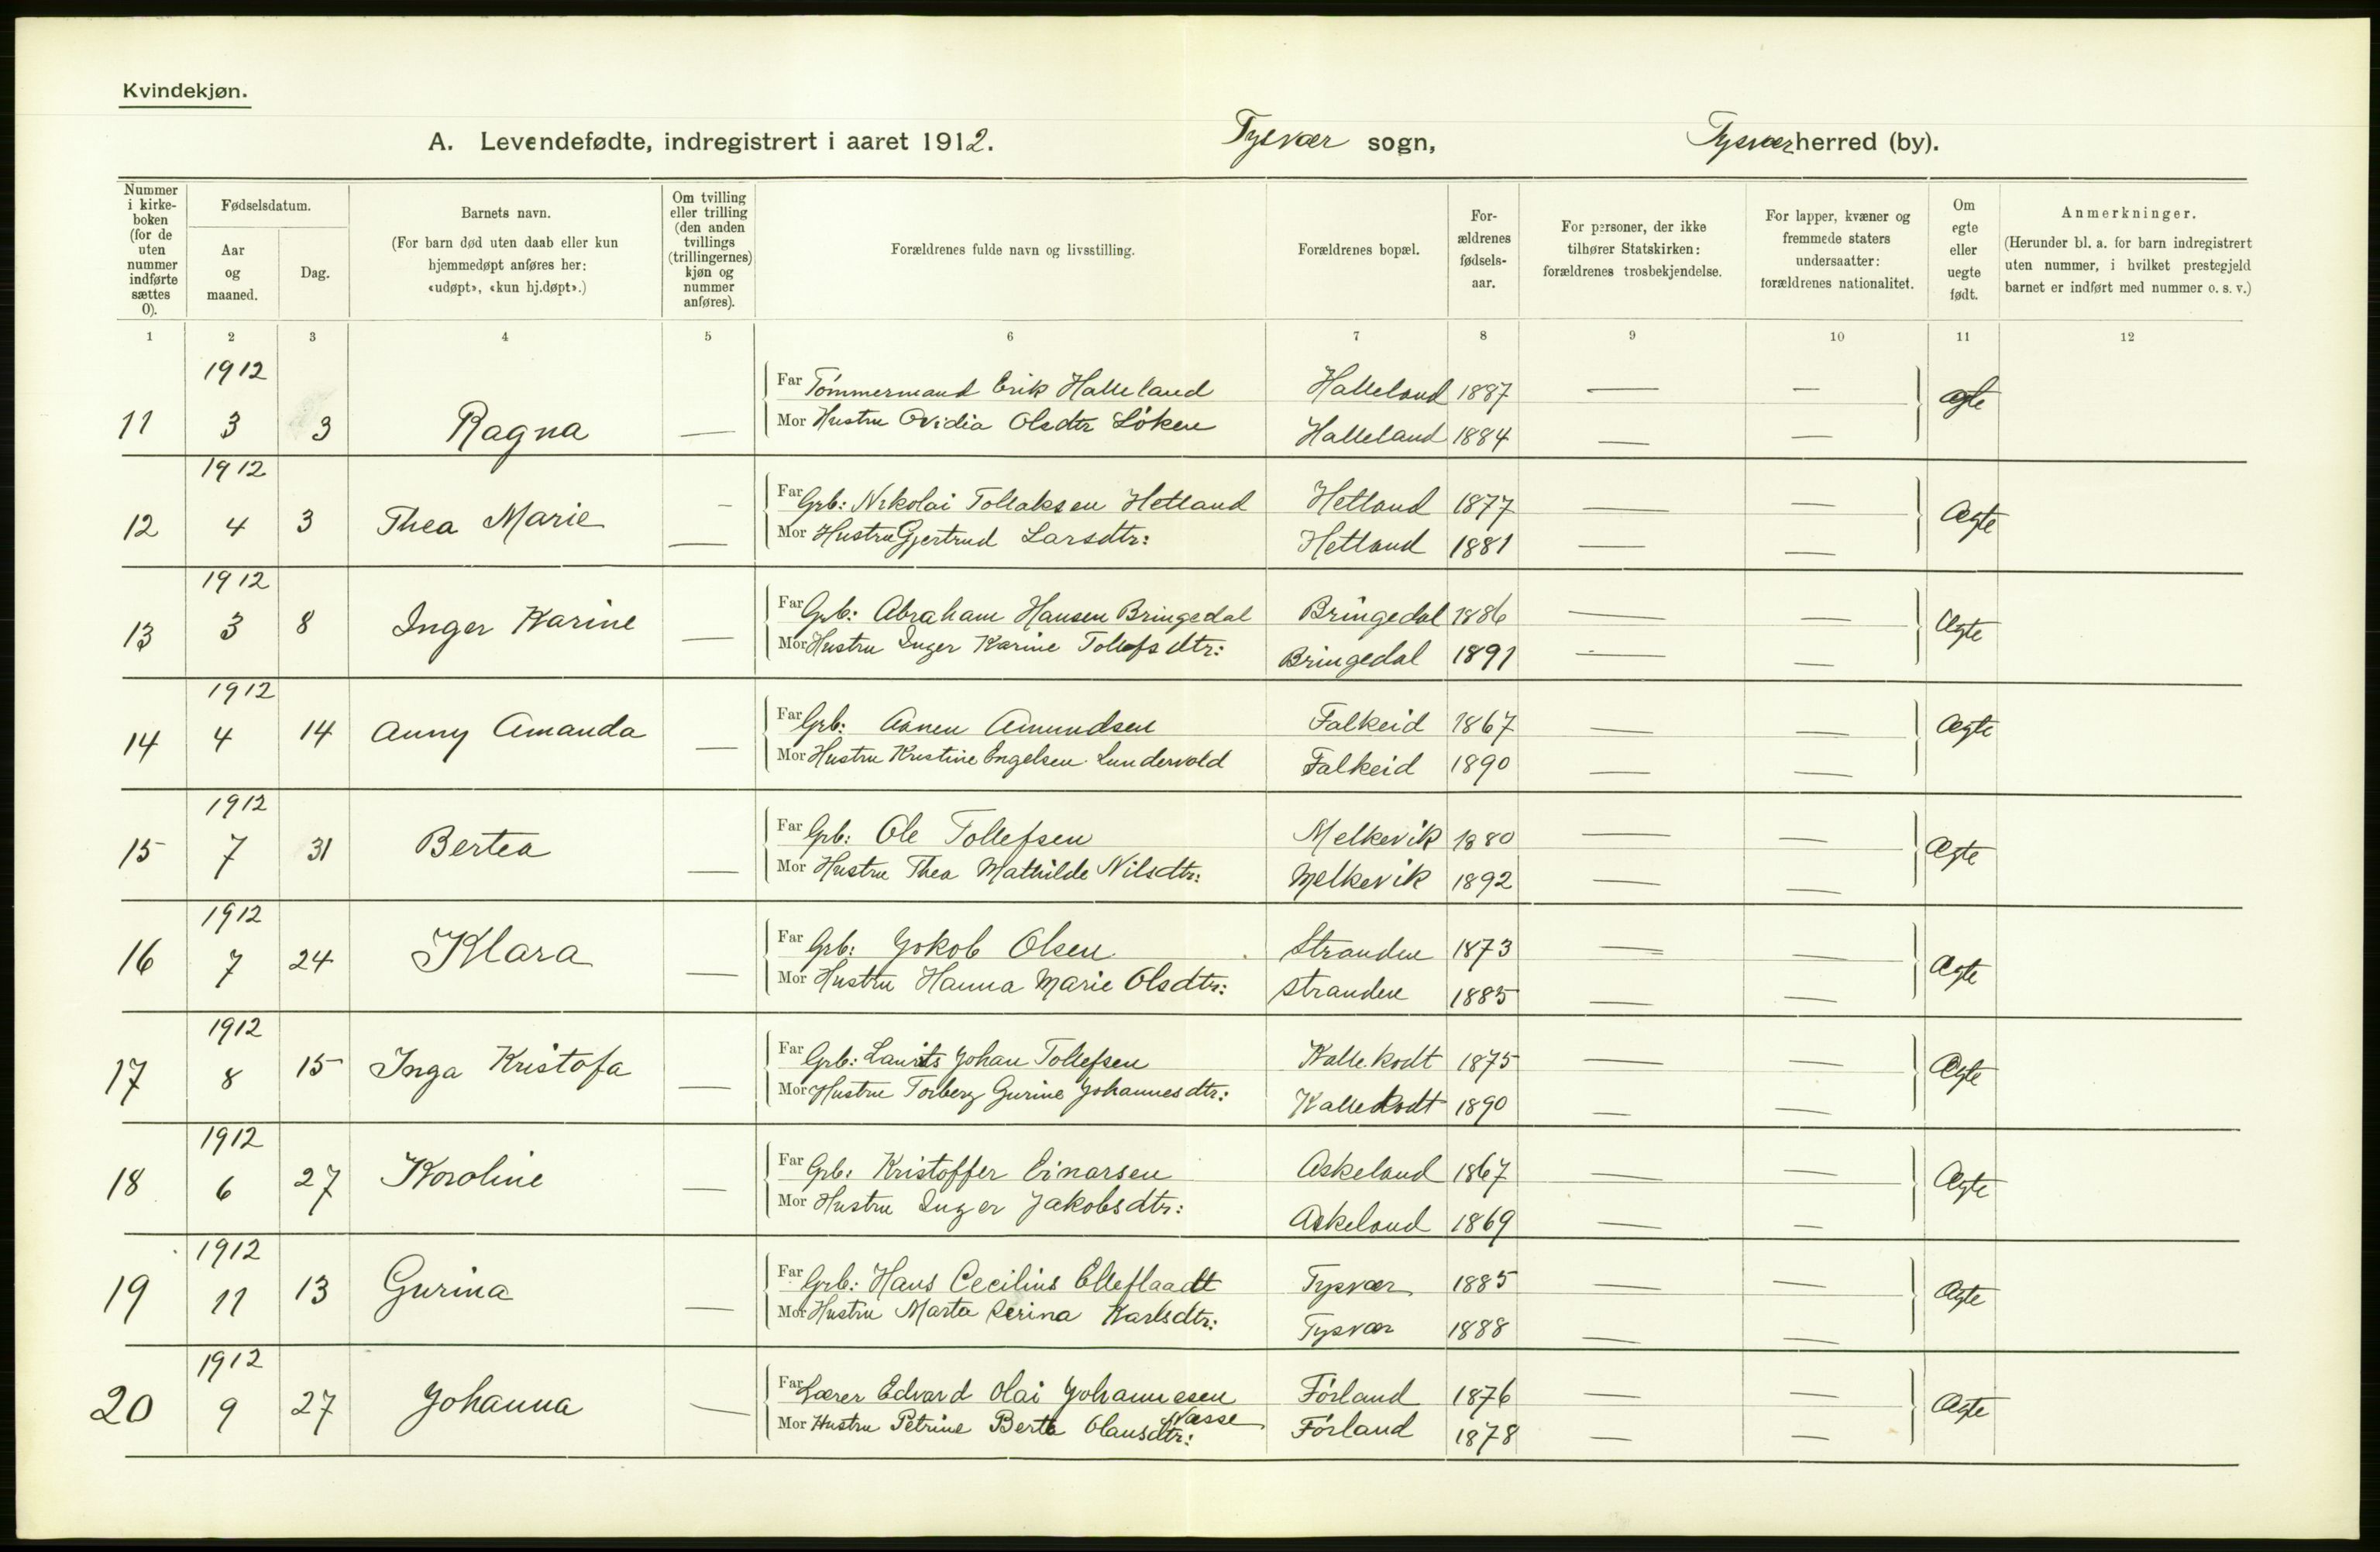 Kvindekjøn.
A. Levendefødte, indregistrert i aaret 1912. Tysvær sogn, Tysvær herred (by).
Nummer i kirke-boken (for de uten nummer indførte sættes 0).
Fødselsdatum.
Aar og maaned.
Dag.
Barnets navn.
(For barn død uten daab eller kun hjemmedøpt anføres her: «udøpt», «kun hj.døpt».)
Om tvilling eller trilling (den anden tvillings (trillingernes) kjøn og nummer anføres).
Forældrenes fulde navn og livsstilling.
Forældrenes bopæl.
For-ældrenes fødsels-aar.
For personer, der ikke tilhører Statskirken: forældrenes trosbekjendelse.
For lapper, kvæner og fremmede staters undersaatter: forældrenes nationalitet.
Om egte eller uegte født.
Anmerkninger.
(Herunder bl. a. for barn indregistrert uten nummer, i hvilket prestegjeld barnet er indført med nummer o. s. v.)
1 2 3 4 5 6 7 8 9 10 11 12
1912
Far Tömmermand Erik Halleland Halleland 1887 — —
11 3 3 Ragna — Mor Hustru Ovidia Olsdtr Löken Halleland 1884 — — Ægte
1912
Far Grb: Nikolai Tollaksen Hetland Hetland 1877 — —
12 4 3 Thea Marie — Mor Hustru Gjertrud Larsdtr: Hetland 1881 — — Ægte
1912
Far Grb: Abraham Hansen Bringedal Bringedal 1886 — —
13 3 8 Inger Karine — Mor Hustru Inger Karine Tollefsdtr: Bringedal 1891 — — Ægte
1912
Far Grb: Amundsen Falkeid 1867 — —
14 4 14 Anny Amanda — Mor Hustru Kristine Engelsen Lundervold Falkeid 1890 — — Ægte
1912
Far Grb: Ole Tollefsen Melkevik 1880 — —
15 7 31 Bertea — Mor Hustru Thea Mathilde Nilsdtr: Melkevik 1892 — — Ægte
1912
Far Grb: Jokob Olsen Stranden 1873 — —
16 7 24 Klara — Mor Hustru Hanna Marie Olsdtr: Stranden 1885 — — Ægte
1912
Far Grb: Laurits Johan Tollefsen Kallekodt 1875 — —
17 8 15 Inga Kristofa — Mor Hustru Torberg Gurine Johannesdtr: Kallekodt 1890 — — Ægte
1912
Far Grb: Kristoffer Einarsen Askeland 1867 — —
18 6 27 Karoline — Mor Hustru Inger Jakobsdtr: Askeland 1869 — — Ægte
1912
Far Grb: Hans Cecilius Elleflaadt Tysvær 1885 — —
19 11 13 Gurina — Mor Hustru Marta Serina Karlsdtr: Tysvær 1888 — — Ægte
1912
Far Lærer Edvard Olai Johannesen Förland 1876 — —
Væsse
20 9 27 Johanna — Mor Hustru Petrine Berta Olausdtr: Förland 1878 — — Ægte